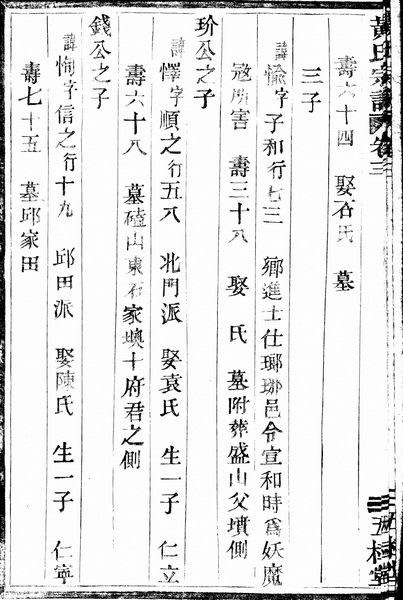 黃氏宗譜 卷三
壽六十四 娶石氏 墓
三子
諱愉字子和行七三 鄉進士仕瑯琊邑令宣和時爲妖魔
寇所害 壽三十八 娶 氏 墓附葬盛山父墳側
玠公之子
諱懌字順之行五八 北門派 娶袁氏 生一子 仁立
壽六十八 墓磕山東石家墺十府君之側
錢公之子
諱恂字信之行十九 邱田派 娶陳氏 生一子 仁寧
壽七十五 墓邱家田
五桂堂